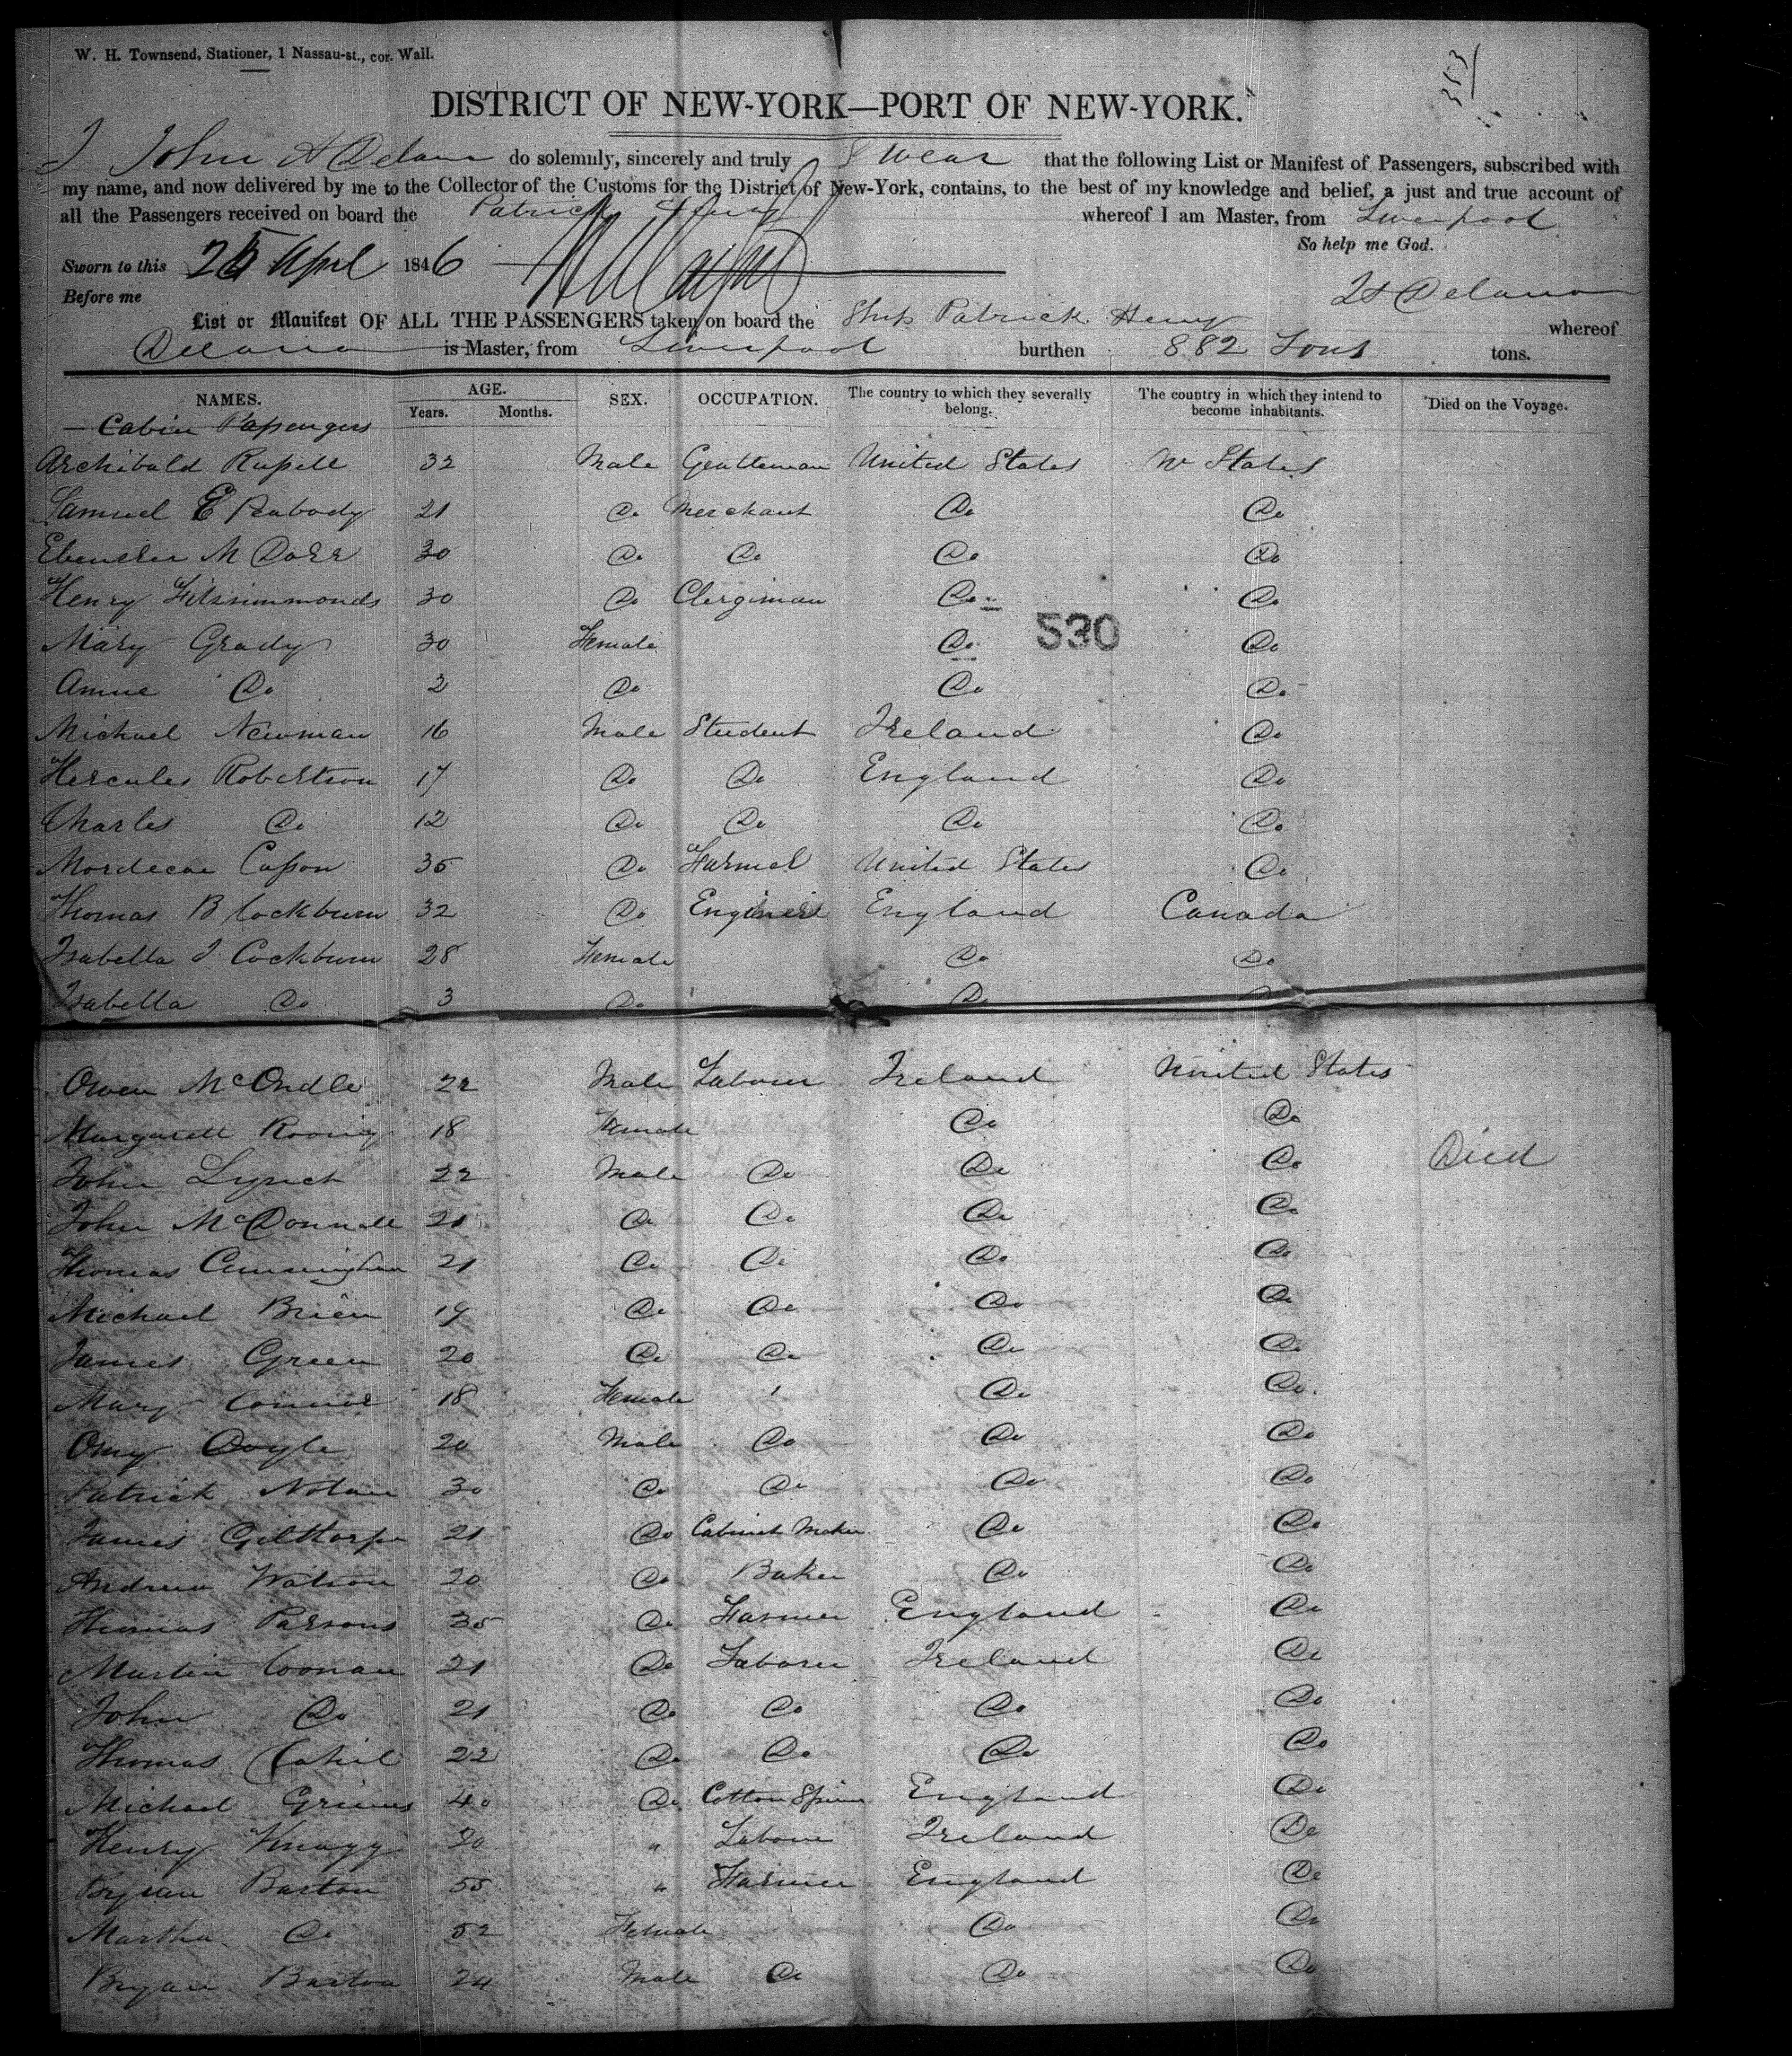 W. H. Townsend, Stationer, 1 Nassau-st., cor. Wall.
353
DISTRICT OF NEW-YORK—PORT OF NEW-YORK.
I John A Delano do solemnly, sincerely and truly Swear that the following List or Manifest of Passengers, subscribed with
my name, and now delivered by me to the Collector of the Customs for the District of New-York, contains, to the best of my knowledge and belief, a just and true account of
all the Passengers received on board the Patrick Henry whereof I am Master, from Liverpool
So help me God.
Sworn to this 25 April 1846
Before me
Delano
List or Manifest OF ALL THE PASSENGERS taken on board the Ship Patrick Henry whereof
Delano is Master, from Liverpool burthen 882 Tons tons.
NAMES. AGE. Years. Months. SEX. OCCUPATION. The country to which they severally belong. The country in which they intend to become inhabitants. Died on the Voyage.
Cabin Passengers
Archibald Russell 32 Male Gentleman United States States
Samuel E Peabody 21 Do Merchant Do Do
Ebenezer M Dorr 30 Do Do Do Do
Henry Fitzsimmonds 30 Do Clergiman Do Do
530
Mary Grady 30 Female Do Do
Anne Do 2 Do Do Do
Michael Newman 16 Male Student Ireland Do
Hercules Robertson 17 Do Do England Do
Charles Do 12 Do Do Do Do
Mordecai Casson 35 Do Farmer United States Do
Thomas B Cockburn 32 Do Engineer England Canada
Isabella J Cockburn 28 Female Do Do
Isabella Do 3 Do Do Do
Owen McOndle 22 Male Labourer Ireland United States
Margarett 18 Female Do Do
John Lynch 22 Male Do Do Do Died
John McDonnell 21 Do Do Do Do
Thomas Cunningham 21 Do Do Do Do
Michael Brien 19 Do Do Do Do
James Green 20 Do Do Do Do
Mary Connor 18 Female Do Do
Doyle 20 Male Do Do Do
Patrick Nolan 30 Do Do Do Do
James Gilthorpe 21 Do Cabinet Maker Do Do
Andrew Watson 20 Do Baker Do Do
Thomas Parsons 35 Do Farmer England Do
Martin Coonan 21 Do Laborer Ireland Do
John Do 21 Do Do Do Do
Thomas Cahil 22 Do Do Do Do
Michael Grimes 40 Do Cotton Spinner England Do
Henry Knagg 20 " Labourer Ireland Do
Bryan Barton 55 " Farmer England Do
Martha Do 52 Female Do Do
Bryan Barton 24 Male Do Do Do